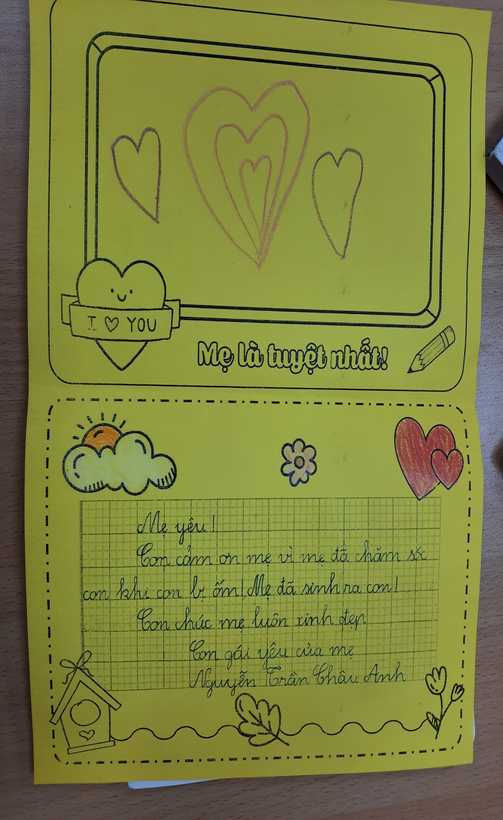 I ♡ YOU
Mẹ là tuyệt nhất!
Mẹ yêu!
Con cảm ơn mẹ vì mẹ đã chăm sóc
con khi con bị ốm! Mẹ đã sinh ra con!
Con chúc mẹ luôn xinh đẹp
Con gái yêu của mẹ
Nguyễn Trần Châu Anh